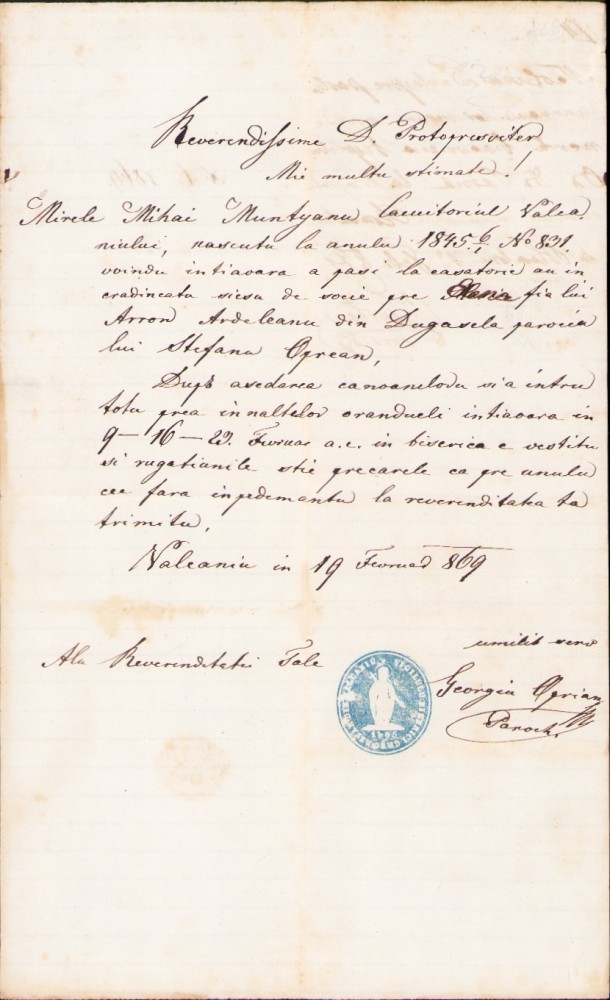 Reverendissime D. Protopresviter
Mie multu stimate!
Mirele Mihai Muntyanu Lacuitoriul Valca-
niului, nascutu la anulu 1845. 6/1 No 831.
voindu intiaoara a pasi la casatorie au in
cradincatu siesu de socie pre Elena fia lui
Arron Ardeleanu din Dugasela parocia
lui Stefanu Oprean,
Dupъ asedarea canoanelodu si a intru
totu prea innaltelor orandueli intiaoara in
9–16–23. Fevruar a.c. in biserica e vestitu
si rugatiunile stie precarele ca pre unulu
cee fara inpedemantu la reverenditatea ta
trimitu,
Valcaniu in 19 Fevruar 869
umilit serv
Ala Reverenditatii Tale
Georgiu Oprian
Paroch.
1796